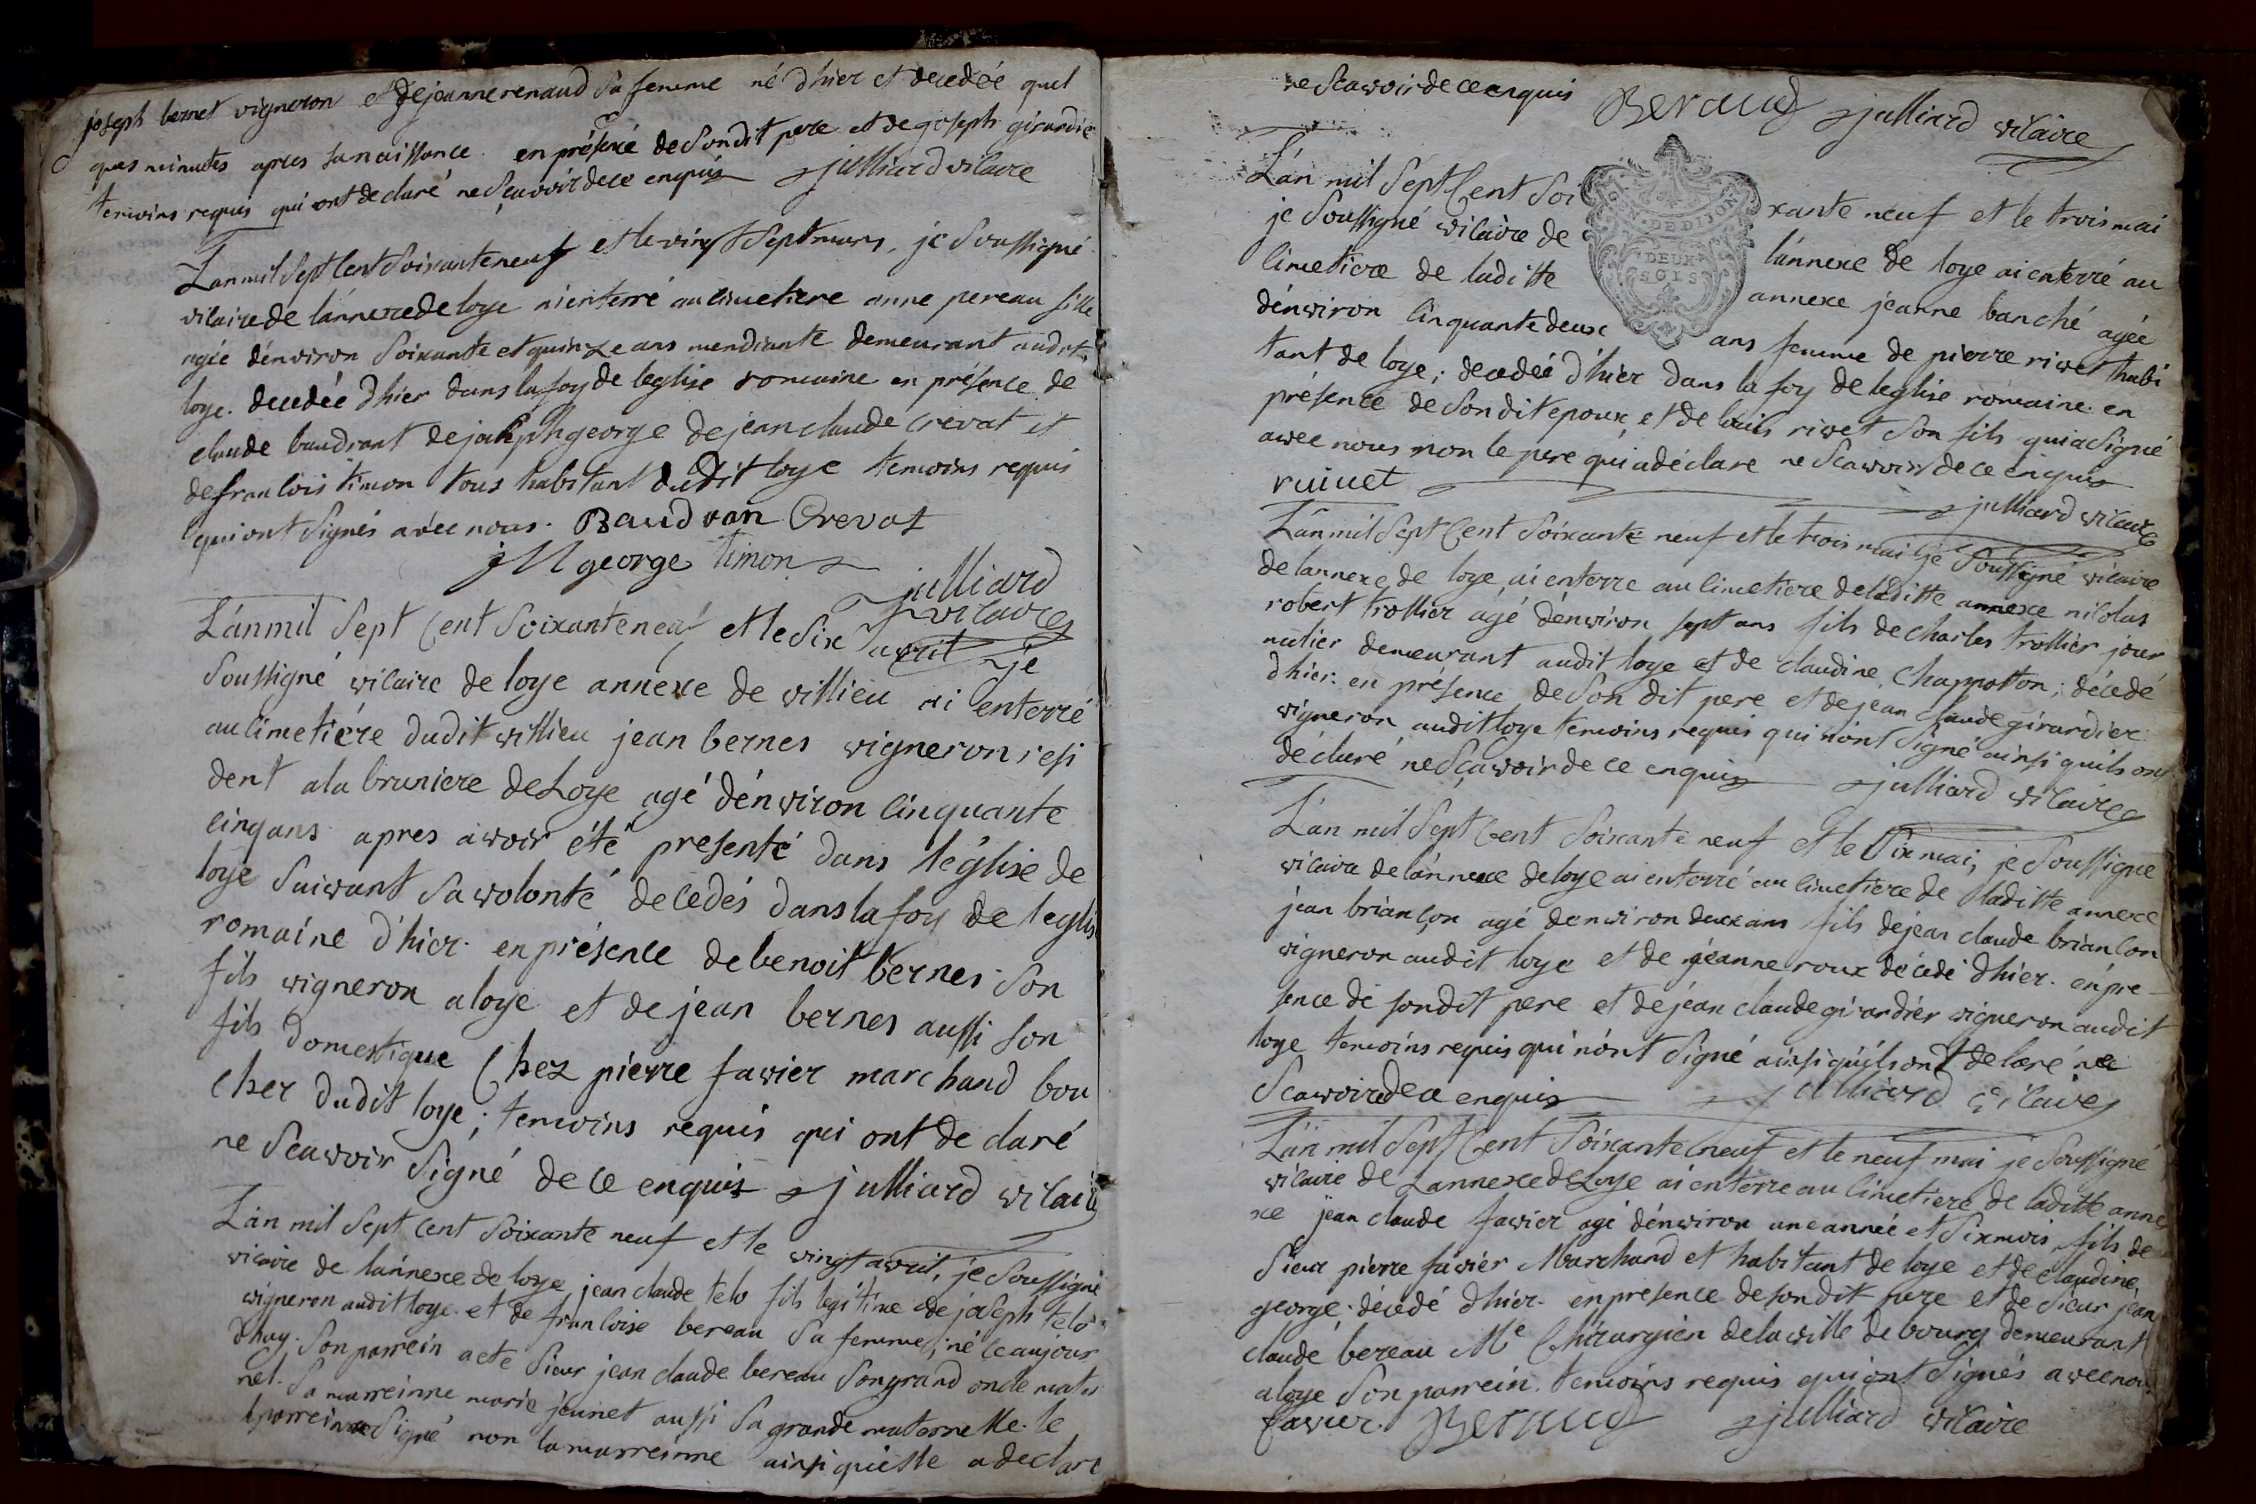 joseph bernet vigneron et de jeanne renaud sa femme né d'hier et decedée quel
ques minutes apres sa naissance. en présence de son dit pere et de joseph girardie
temoins requis qui ont declaré ne sçavoir de ce enquis julliard vicaire
L'an mil sept cent soixante neuf et le vingt sept mars, je soussigné
vicaire de l'annexe de loye ai enterré au cimetiere anne pereau fille
agée d'environ soixante et quinze ans mendiante demeurant audit
loye. decedée d'hier dans la foy de leglise romaine en présence de
claude baudrant de joseph george de jean claude crevat et
de francois timon tous habitant dudit loye temoins requis
qui ont signés avec nous. Baudran Crevat
george timon
julliard
vicaire
L'an mil sept cent soixante neuf et le six avril je
soussigné vicaire de loye annexe de villieu ai enterré
au cimetiére dudit villieu jean bernes vigneron resi
dent a la bruniere de Loye agé d'environ cinquante
cinq ans apres avoir été presenté dans l'église de
loye suivant sa volonté decedés dans la foy de leglis
romaine d'hier. en présence de benoit bernes son
fils vigneron a loye et de jean bernes aussi son
fils domestique chez pierre favier marchand bou
cher dudit loye; temoins requis qui ont declaré
ne scavoir signé de ce enquis julliard vicaire
L'an mil sept cent soixante neuf et le vingt avril, je soussigné
vicaire de l'annexe de loye jean claude telo fils legitime de joseph telo
vigneron audit loye. et de francoise bereau sa femme, né ce aujour
d'huy. son parrein a eté sieur jean claude bereau son grand oncle mater
nel. sa marreinne marie jeunet aussi sa grande maternelle. le
parrein a signé non la marreinne ainsi quelle a declaré
ne scavoir de ce enquis Beraud julliard vicaire
GEN. DE DIJON
DEUX
SOLS
L'an mil sept cent soixante neuf et le trois mai
je soussigné vicaire de l'annexe de loye ai enterré au
cimetiere de laditte annexe jeanne banché agée
d'environ cinquante deux ans femme de pierre rivet habi
tant de loye; decedée d'hier dans la foy de leglise romaine. en
présence de son dit epoux et de louis rivet son fils qui a signé
avec nous non le pere qui a déclaré ne scavoir de ce enquis
ruivet
julliard vicaire
L'an mil sept cent soixante neuf et le trois mai je soussigné vicaire
de l'annexe de loye ai enterré au cimetiere de laditte annexe nicolas
robert trollier agé d'environ sept ans fils de charles trollier jour
nalier demeurant audit loye et de claudine chappotton; décedé
d'hier. en présence de son dit pere et de jean claude girardier
vigneron audit loye temoins requis qui n'ont signé ainsi quils ont
déclaré ne sçavoir de ce enquis julliard vicaire
L'an mil sept cent soixante neuf et le six mai, je soussigné
vicaire de l'annexe de loye ai enterré au cimetiere de laditte annexe
jean briancon agé d'environ deux ans fils de jean claude briancon
vigneron audit loye et de jeanne roux décedé d'hier. en pre-
sence de son dit pere et de jean claude girardier vigneron audit
loye temoins requis qui n'ont signé ainsi qu'ils ont declaré ne
scavoir de ce enquis julliard vicaire
L'an mil sept cent soixante neuf et le neuf mai je soussigné
vicaire de L'annexe de Loye ai enterré au cimetiere de laditte anne
xe jean claude favier agé d'environ une année et six mois, fils de
sieur pierre favier Marchand et habitant de loye et de claudine
george. décedé d'hier. en presence de son dit pere et de sieur jean
claude bereau Me chirurgien de la ville de bourg demeurant
a loye son parrein. temoins requis qui ont signés avec nou
favier. Beraud julliard vicaire